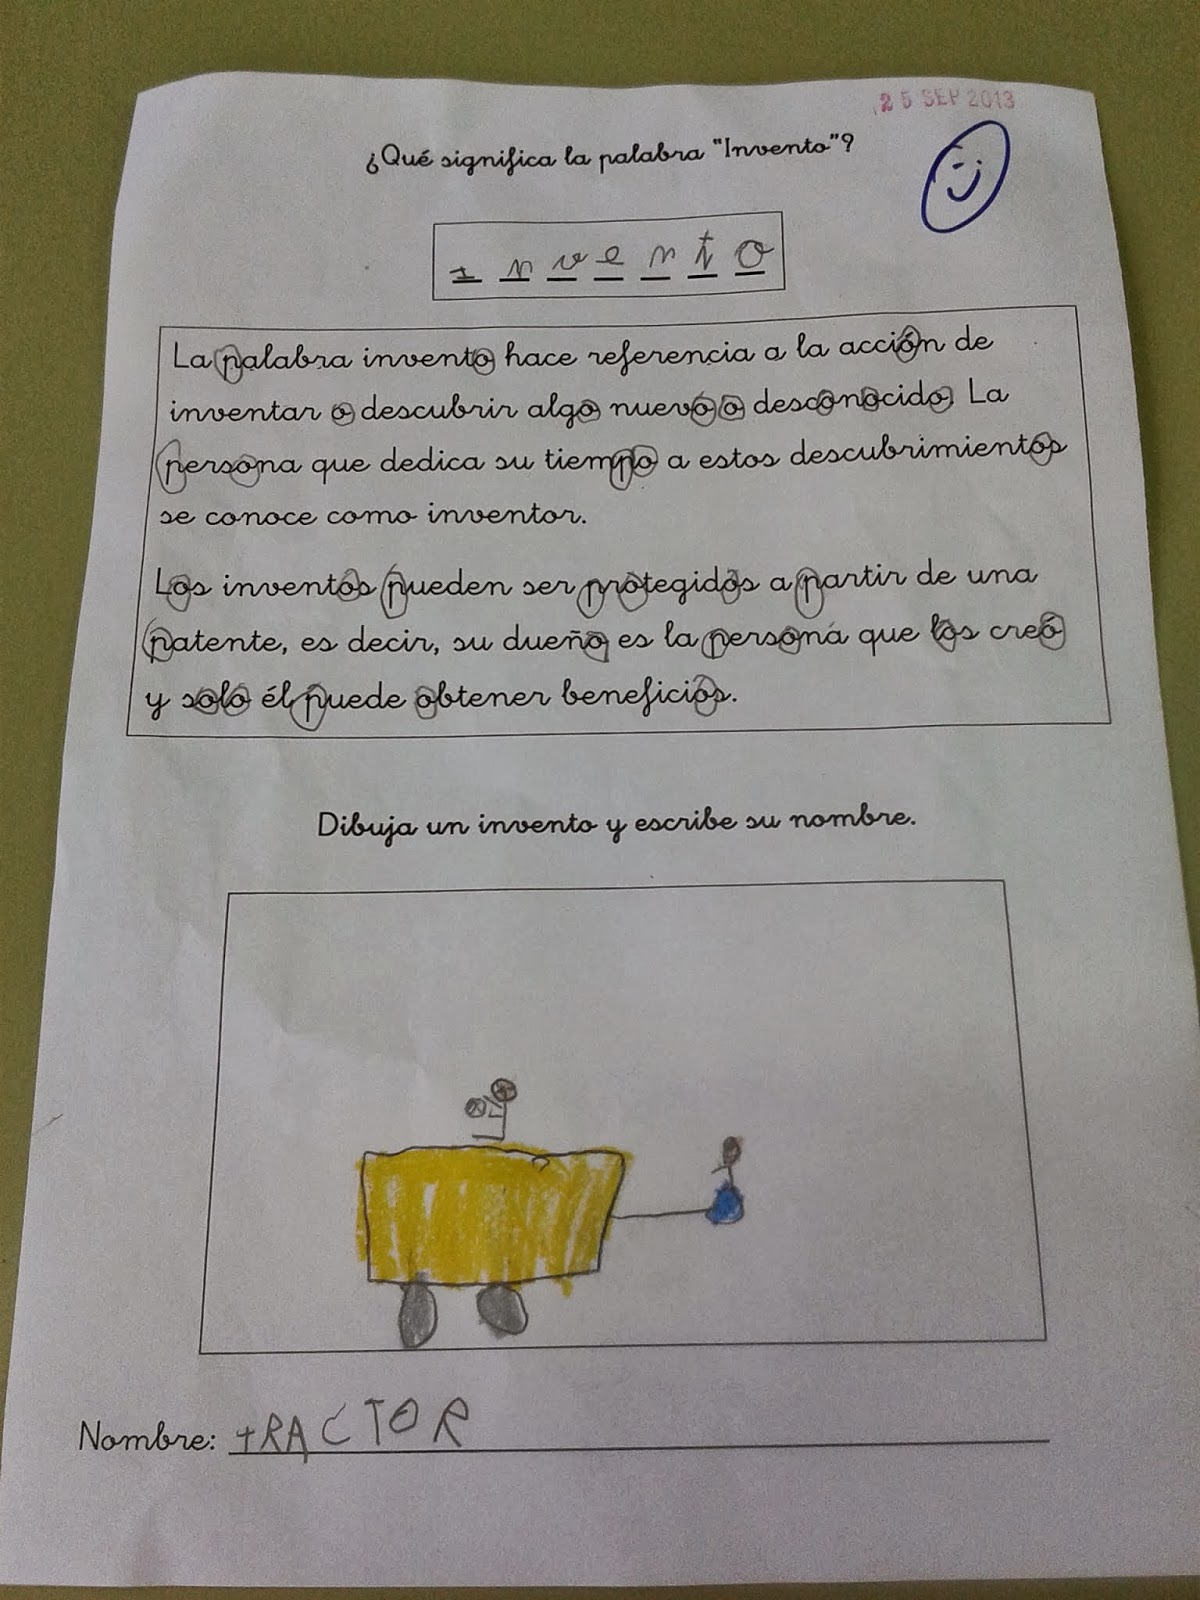 25 SEP 2013
¿Qué significa la palabra "Invento"?
I n v e n t o
La palabra invento hace referencia a la acción de
inventar o descubrir algo nuevo o desconocido. La
persona que dedica su tiempo a estos descubrimientos
se conoce como inventor.
Los inventos pueden ser protegidos a partir de una
patente, es decir, su dueño es la persona que los creó
y solo él puede obtener beneficios.
Dibuja un invento y escribe su nombre.
Nombre: tRACTOR